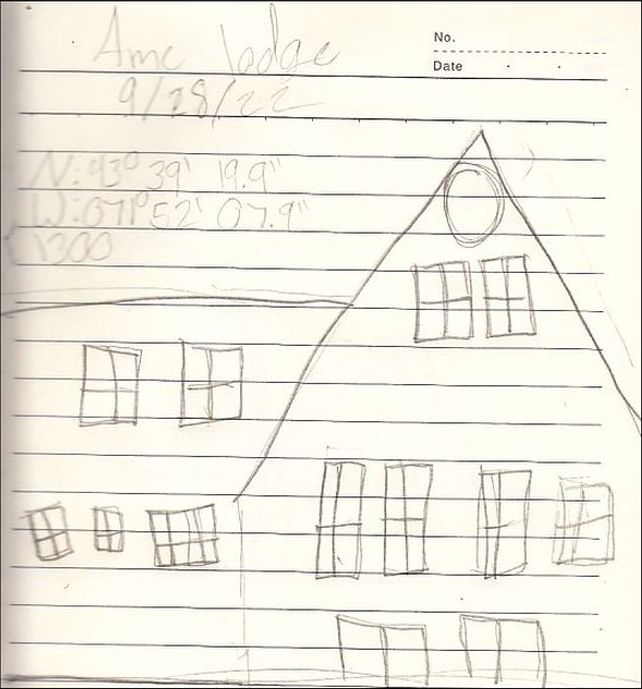 Amc lodge
No.
Date
9/28/22
N: 43° 39' 19.9"
W: 071° 52' 07.9"
1300